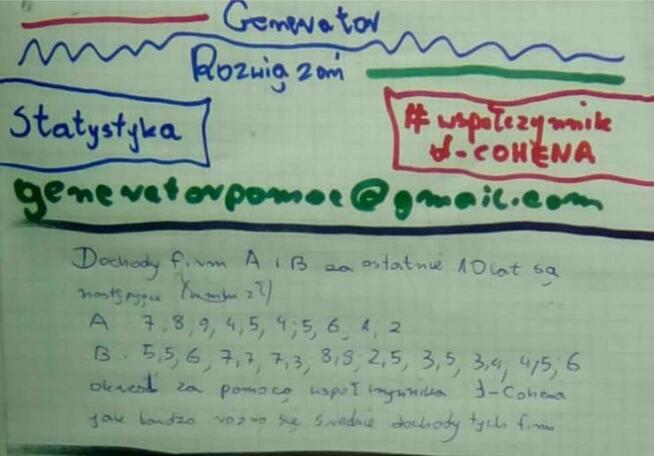 Generator
Rozwiązań
Statystyka
# współczynnik
d-COHENA
generatorpomoc@gmail.com
Dochody firm A i B za ostatnie 10 lat są
następujące (w mln zł)
A 7, 8, 9, 4, 5, 4,5, 5, 6, 1, 2
B. 5,5, 6, 7,7, 7,3, 8,9, 2,5, 3,5, 3,4, 4,5, 6
określ za pomocą współczynnika d-Cohena
jak bardzo różnią się średnie dochody tych firm